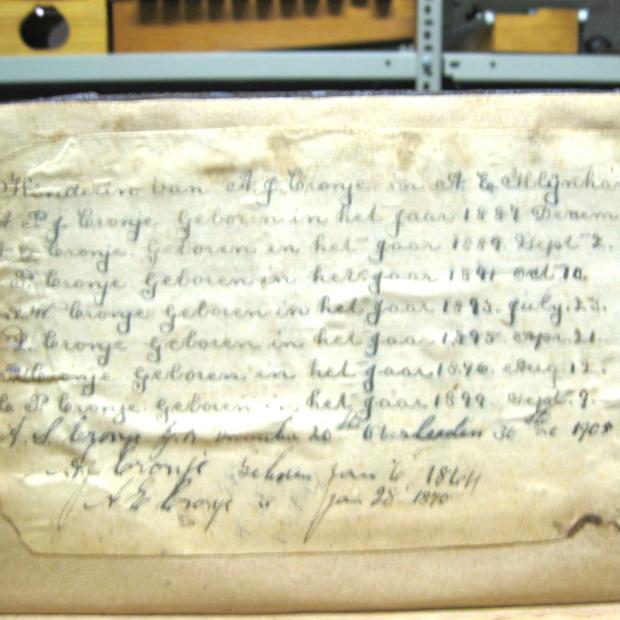 Kinderin van A. J. Cronje in A. E. Klynha
P J Cronje Geboren in het Jaar 1887 Desem
Cronje. Geboren in het Jaar 1889. Sept 2.
P. Cronje Geboren in het Jaar 1891 Oct 10.
W Cronje Geboren in het Jaar 1893. July. 23.
Cronje Geboren in het Jaar 1895 Apr. 21.
Cronje Geboren in het Jaar 1896. Aug 12.
P. Cronje. Geboren in het Jaar 1899. Sept. 9.
A. S. Cronje 20 30 1905
A J Cronje Geboren Jan 6 1864
A E Cronje Jan 28 1870